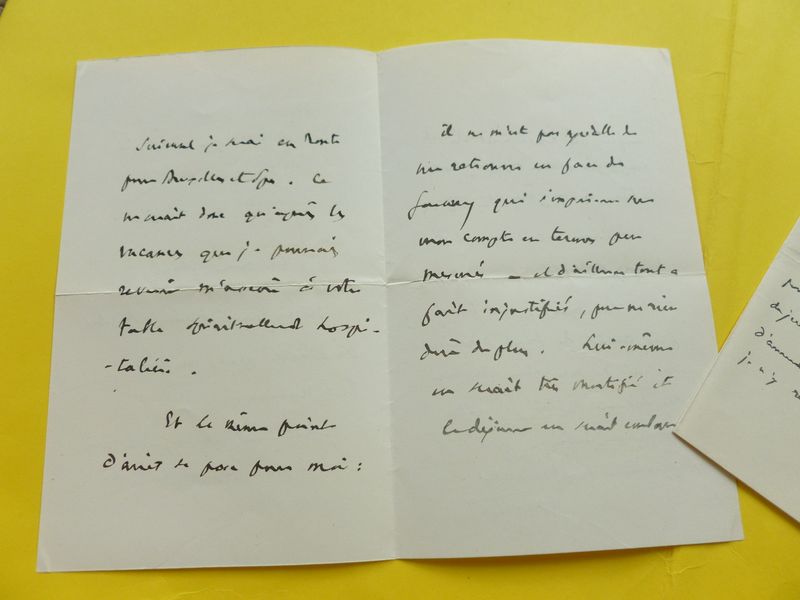 je serai en route
pour Bruxelles et Spa. Ce
ne serait donc qu'après les
vacances que je pourrais
revenir m'asseoir à votre
table spirituellement hospi-
-talière.
Et le même point
d'arrêt se pose pour moi :
il ne m'est pas possible de
me retrouver en face de
qui s'exprime sur
mon compte en termes peu
mesurés - et d'ailleurs tout à
fait injustifiés, pour ne rien
dire de plus. Lui-même
en serait très mortifié et
le déjeuner en serait